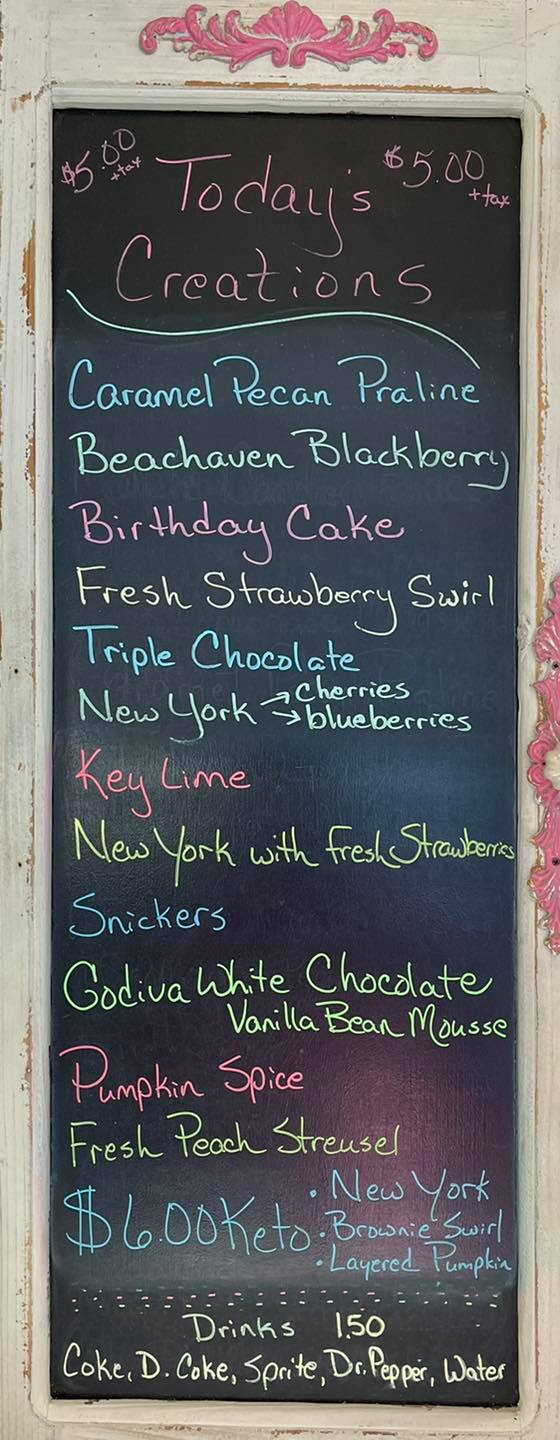 $5.00 +tax
$5.00 +tax
Today's
Creations
Caramel Pecan Praline
Beachaven Blackberry
Birthday Cake
Fresh Strawberry Swirl
Triple Chocolate
New York → cherries
→ blueberries
Key Lime
New York with Fresh Strawberries
Snickers
Godiva White Chocolate
Vanilla Bean Mousse
Pumpkin Spice
Fresh Peach Streusel
$6.00 Keto • New York
• Brownie Swirl
• Layered Pumpkin
Drinks 1.50
Coke, D. Coke, Sprite, Dr. Pepper, Water